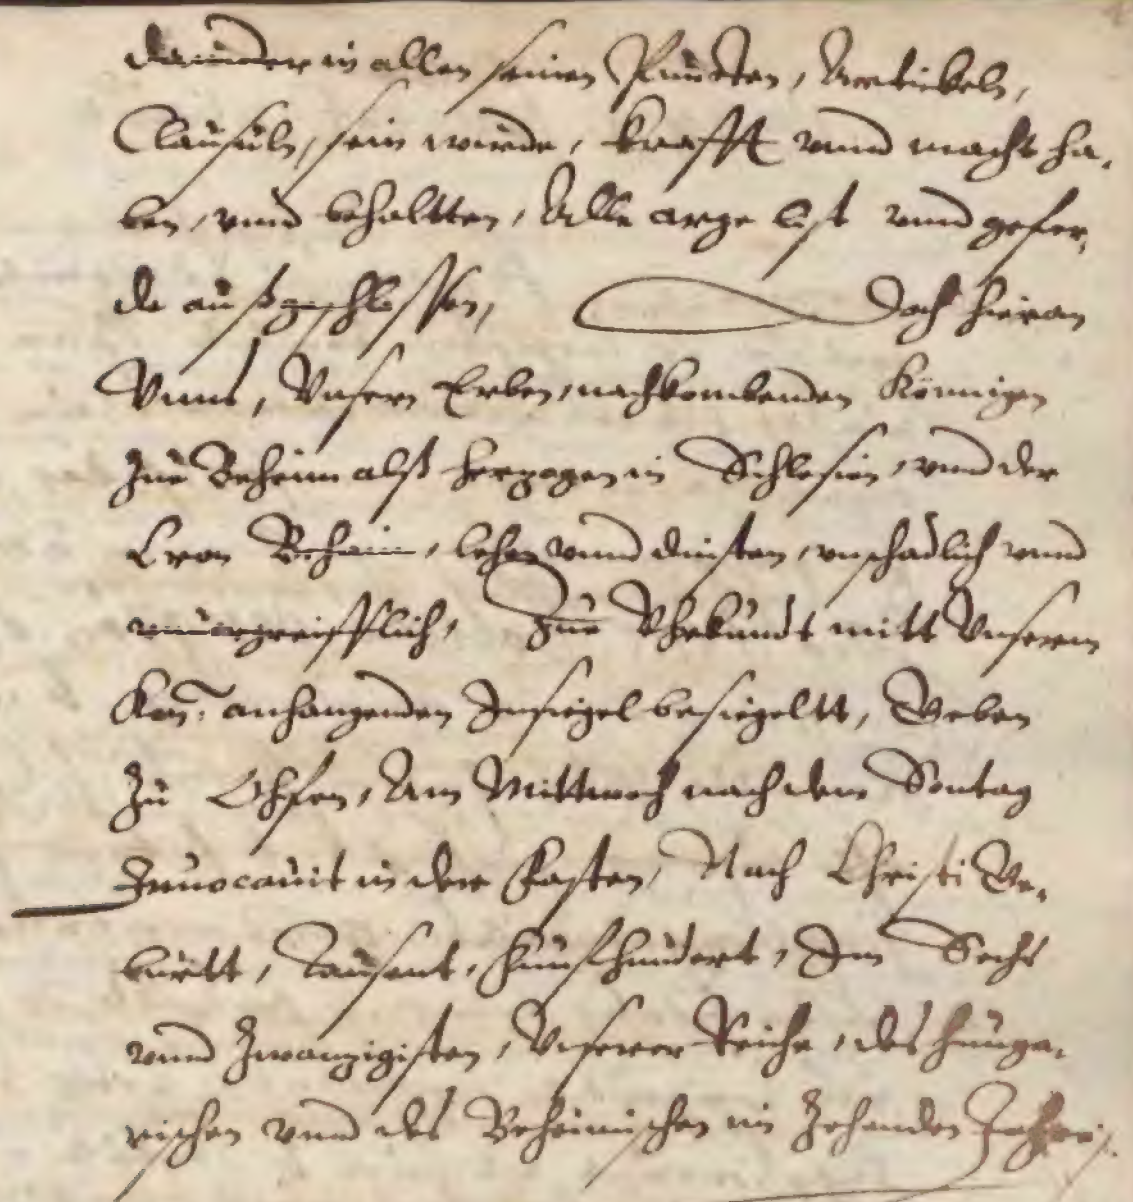 darinder in allen seinen Puncten, Artickeln,
Clausuln, sein würde, Krafft vnnd macht ha,
ben, vnnd behaltten, Alle arge list vnnd gefer,
de außgeschlossen, Doch hieran
Vnns, Vnsern Erben, nachkombenden Königen
Zue Beheim alß herzogen in Schlesien, vnnd der
Cron Beheim, lehen vnnd dinsten, vnschadlich vnnd
vnuergreifflich, Zue Vhrkundt mitt Vnserm
Kön: anhangenden Insiegel besiegeltt, Geben
Zu Ohfen, Am Mittwoch nach dem Sontag
Inuocauit in der Fasten, Nach Christi Ge,
burtt, Tausent, Funfhundert, Im Sechs
vnnd Zwanzigisten, Vnserer Reiche, des Hunga,
rischen vnnd des Beheimischen im Zehenden Jahre.